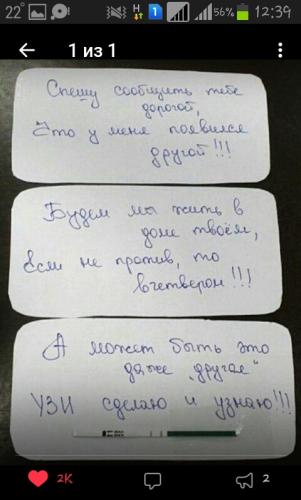 22°
H
1
56%
12:39
1 из 1
Спешу сообщить тебе
дорогой,
Что у меня появился
другой!!!
Будем мы жить в
доме твоём,
Если не против, то
вчетвером!!!
А может быть это
даже "другая"
УЗИ сделаю и узнаю!!!
2K
2